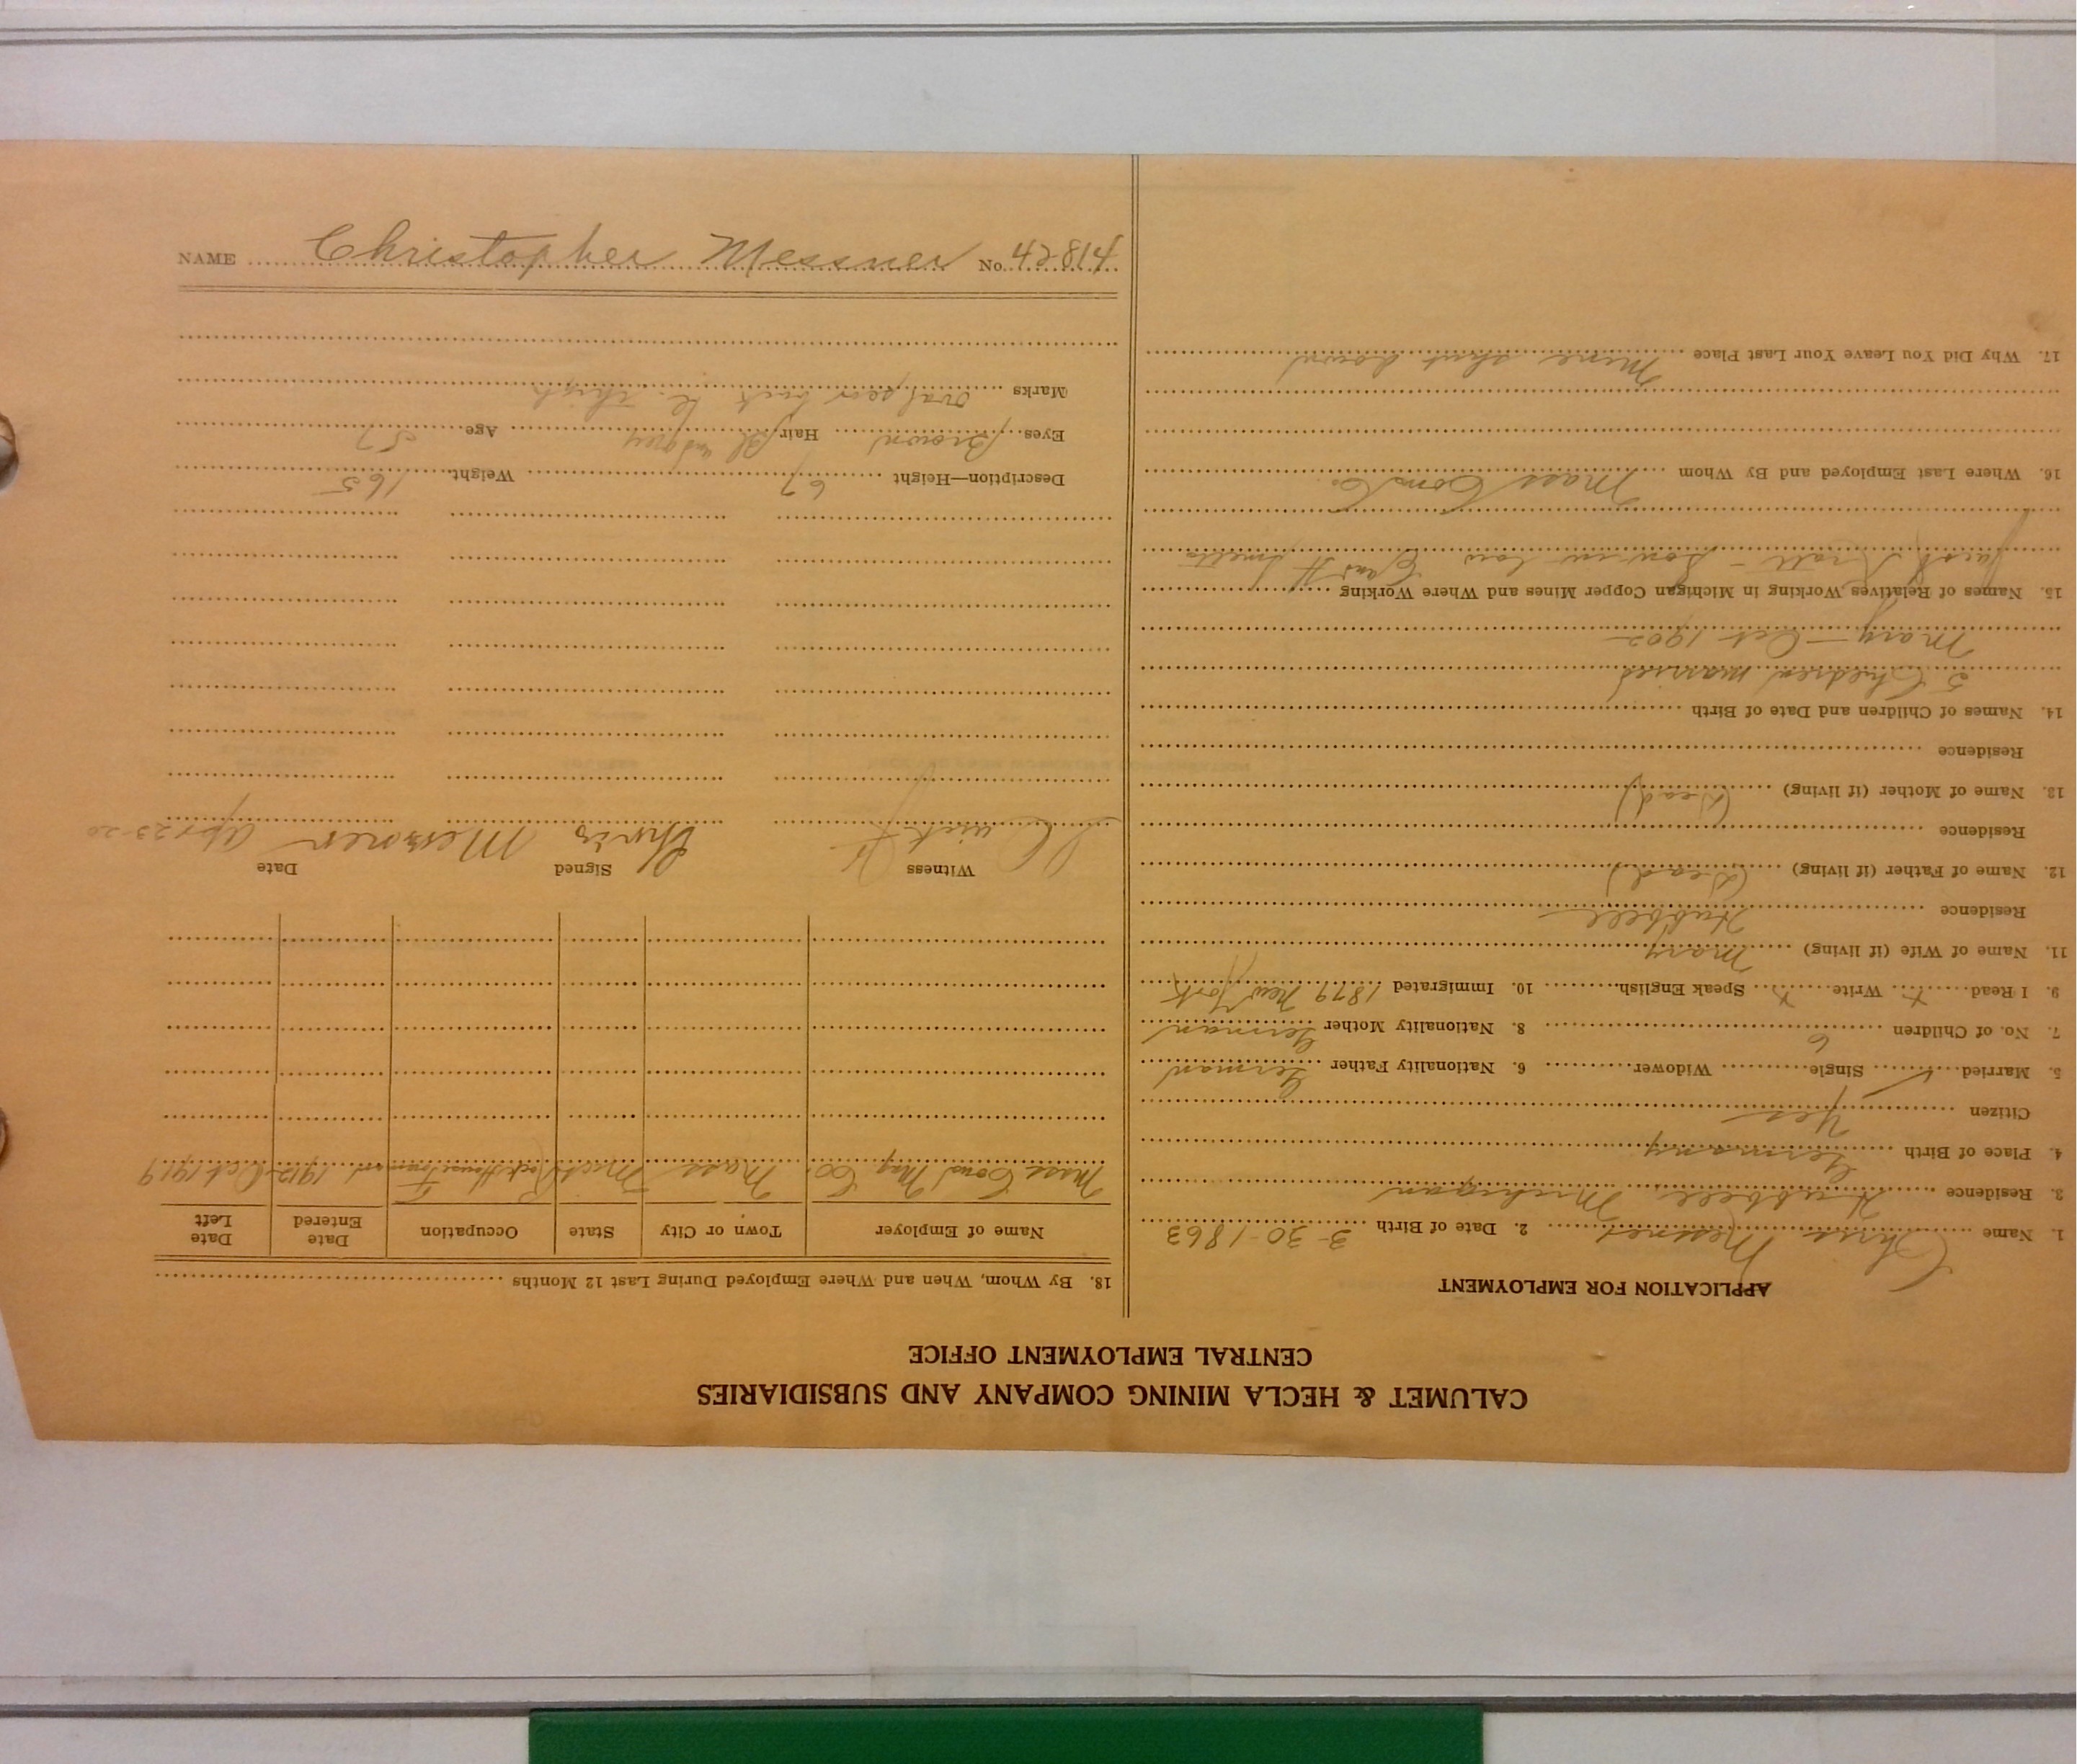 CALUMET & HECLA MINING COMPANY AND SUBSIDIARIES
CENTRAL EMPLOYMENT OFFICE
APPLICATION FOR EMPLOYMENT
1. Name Chris Messner 2. Date of Birth 3-30-1863
3. Residence Hubbell, Michigan
4. Place of Birth Germany
Citizen Yes
5. Married ✓ Single Widower 6. Nationality Father German
7. No. of Children 6 8. Nationality Mother German
9. I Read x Write x Speak English 10. Immigrated 1879 New York
11. Name of Wife (if living) Mary
Residence Hubbell
12. Name of Father (if living) (Dead)
Residence
13. Name of Mother (if living) (Dead)
Residence
14. Names of Children and Date of Birth
5 Children married
Mary - Oct 1902
15. Names of Relatives Working in Michigan Copper Mines and Where Working
- Son in law C and H Smelter
16. Where Last Employed and By Whom Mass Cons Co.
17. Why Did You Leave Your Last Place Mine shut down
18. By Whom, When and Where Employed During Last 12 Months
Name of Employer Town or City State Occupation Date Entered Date Left
Mass Cons Mng Co. Mass Mich Rock House 1912 Oct 1919
Witness Signed Date
Chris Messner Apr 23-20
Description—Height 67 Weight 165
Eyes Brown Hair Bl and grey Age 57
Marks oval scar back thigh
NAME Christopher Messner No. 42814